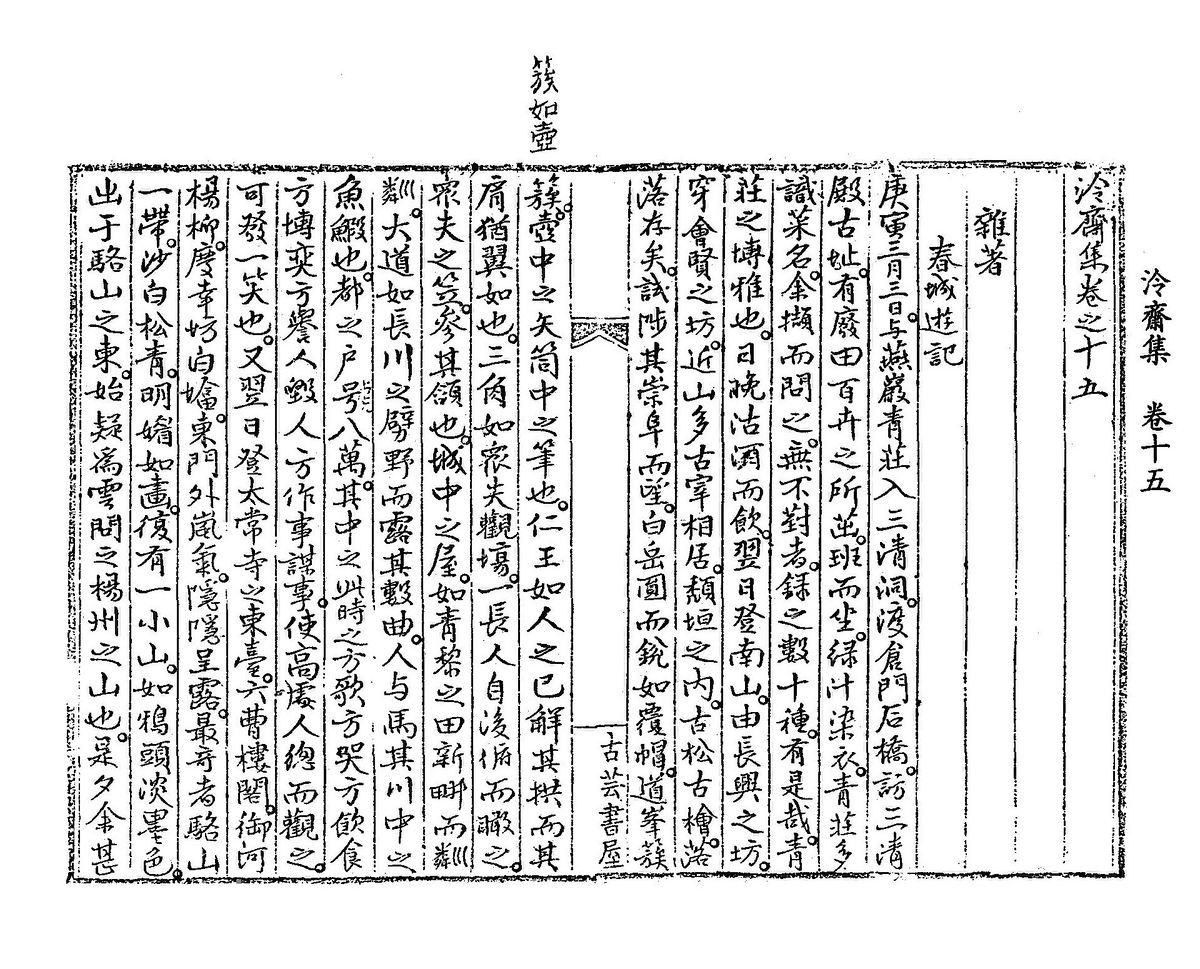 泠齋集 卷十五
泠齋集卷之十五
雜著
春城遊記
庚寅三月三日。与燕巖青莊入三清洞。渡倉門石橋。訪三清
殿古址。有廢田百卉之所茁。班而坐。綠汁染衣。青莊多
識菜名。余擷而問之。無不對者。録之數十種。有是哉。青
莊之博雅也。日晚沽酒而飲。翌日登南山。由長興之坊。
穿會賢之坊。近山多古宰相居。頹垣之內。古松古檜。落
落存矣。試陟其崇阜而望。白岳圓而銳如覆帽。道峯簇
古芸書屋
簇如壺
簇。壺中之矢筒中之筆也。仁王如人之已觧其拱而其
肩猶翼如也。三角如衆夫觀塲。一長人自後俯而瞰之。
衆夫之笠。參其頷也。城中之屋。如青黎之田新畊而粼
粼。大道如長川之劈野而露其數曲。人与馬其川中之
魚鰕也。都之戶号八萬。其中之此時之方歌方哭方飲食
方博奕方譽人毀人方作事謀事。使高處人緫而觀之。
可發一笑也。又翌日登太常寺之東臺。六曹樓閣。御河
楊柳。慶幸坊白塔。東門外嵐氣。隱隱呈露。最奇者駱山
一帶。沙白松青。明媚如畫。復有一小山。如鴉頭淡墨色。
出于駱山之東。始疑爲雲。問之楊州之山也。是夕余甚